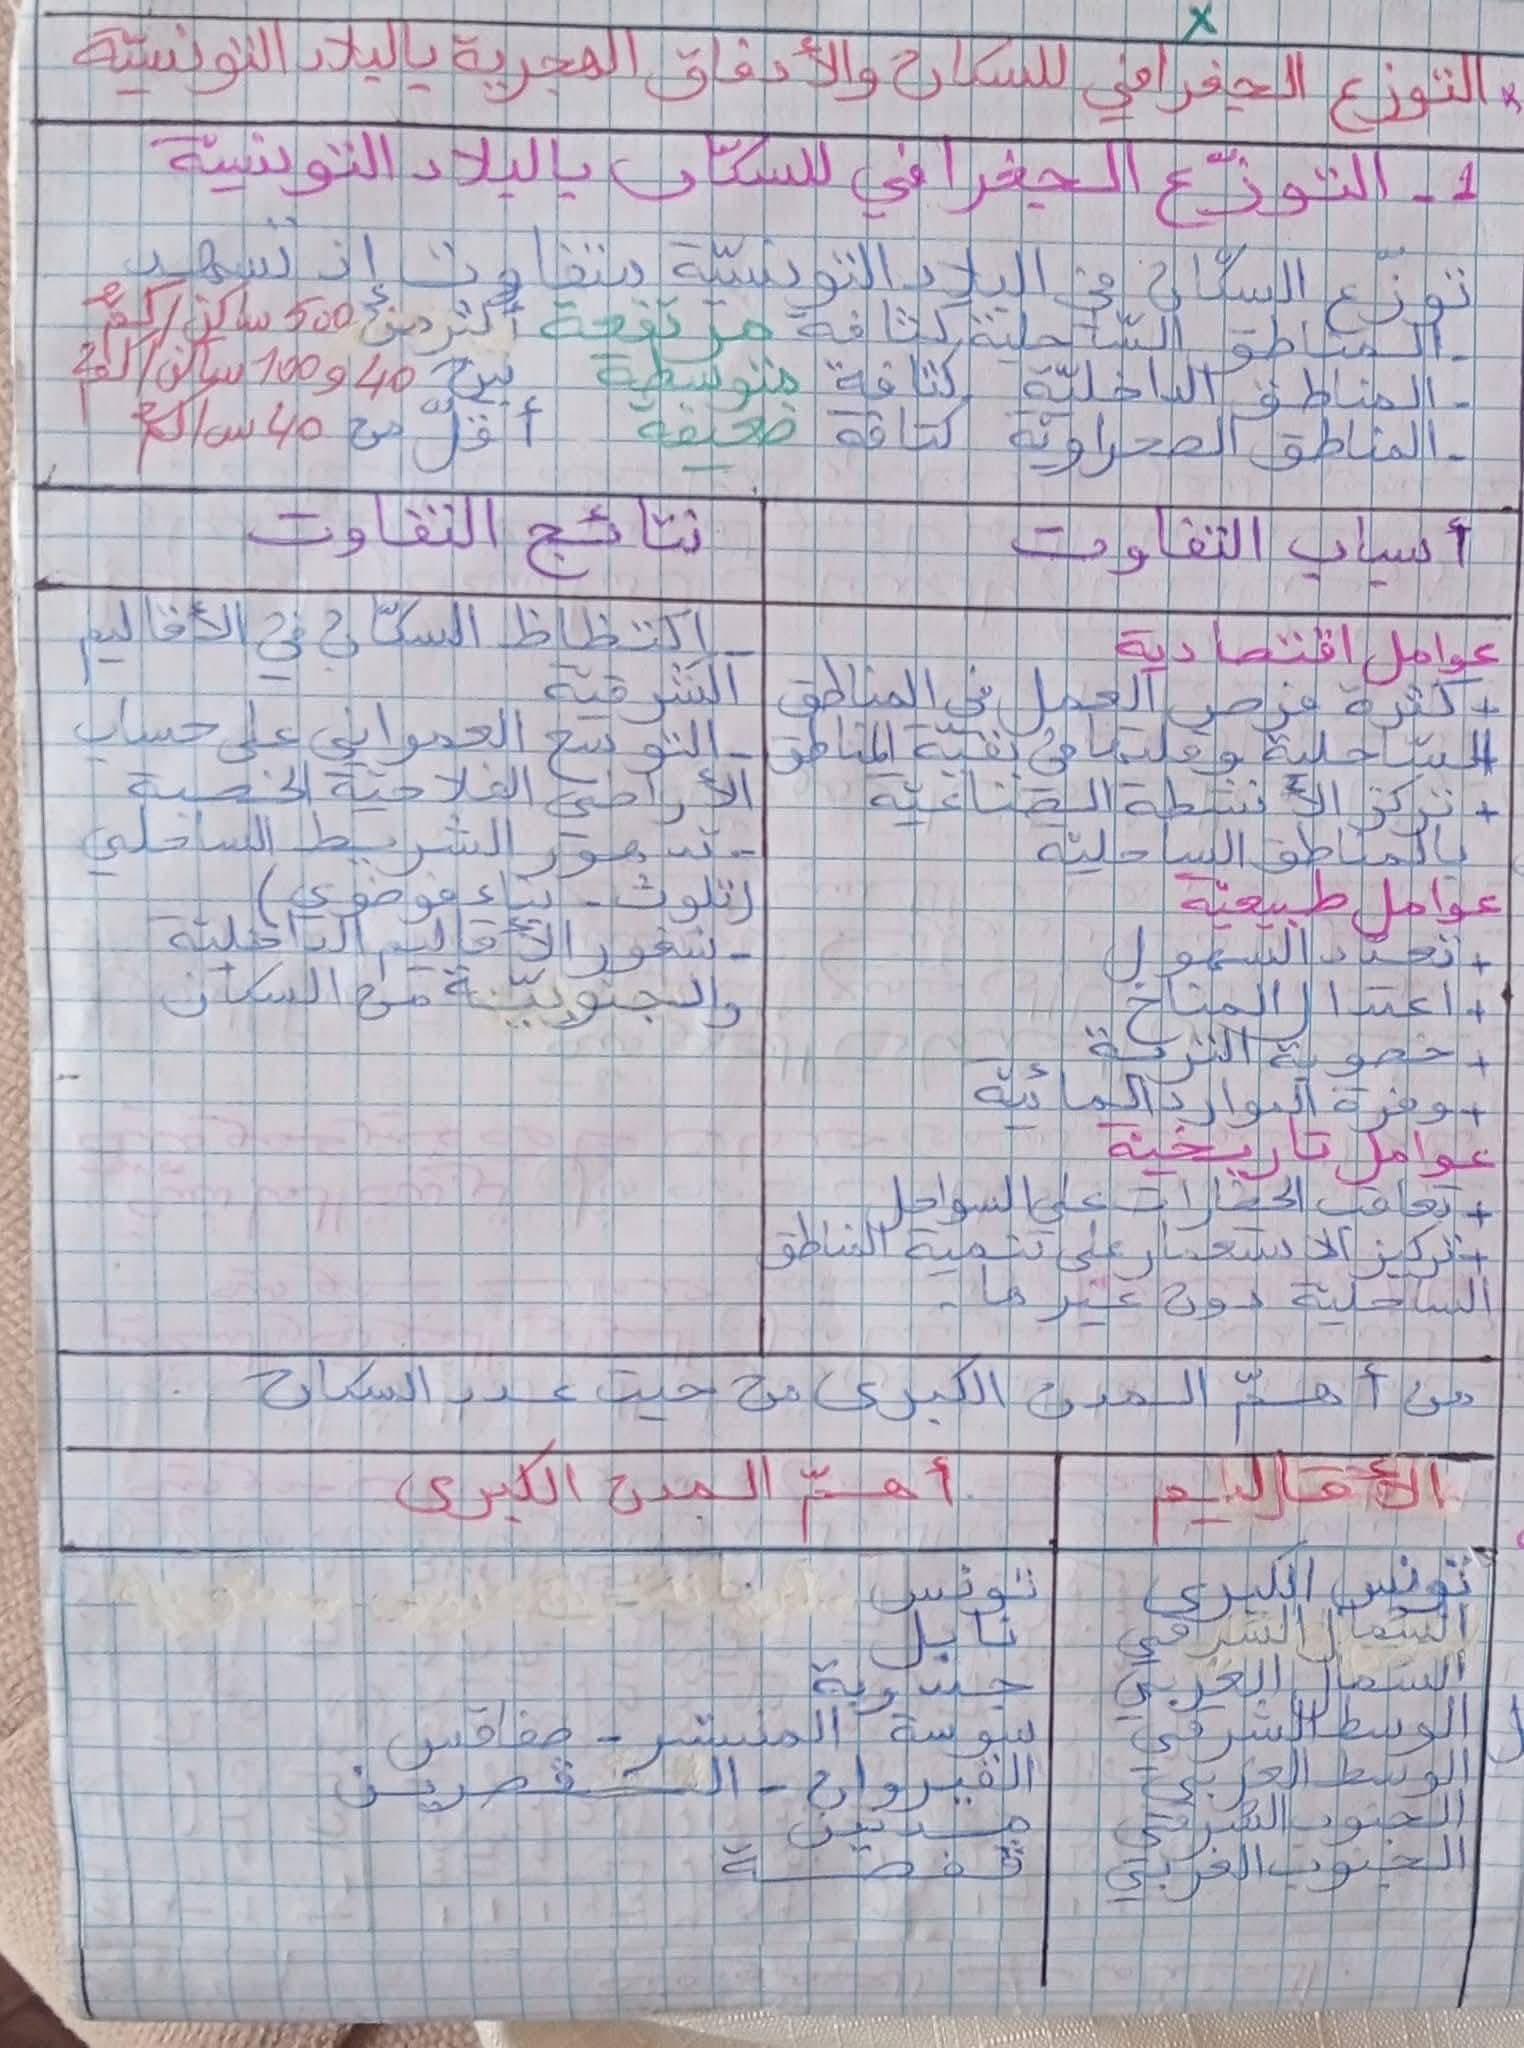 x
* التوزع الجغرافي للسكان والأدفاق الهجرية بالبلاد التونسيّة
1 - التوزّع الجغرافي للسكّان بالبلاد التونسيّة
توزّع السكّان في البلاد التونسيّة متفاوت إذ تشهد
- المناطق السّاحلية كثافة مرتفعة أكثر من 500 ساكن/كم²
- المناطق الداخليّة كثافة متوسطة بين 40 و 100 ساكن/كم²
- المناطق الصحراويّة كثافة ضعيفة أقلّ من 40 س/كم²
أسباب التفاوت
عوامل اقتصادية
+ كثرة فرص العمل في المناطق
السّاحلية وقلّتها في بقيّة المناطق
+ تركز الأنشطة الصّناعيّة
بالمناطق الساحليّة
عوامل طبيعيّة
+ تعدّد السهول
+ اعتدال المناخ
+ خصوبة التربة
+ وفرة الموارد المائيّة
عوامل تاريخيّة
+ تعاقب الحضارات على السواحل
+ تركيز الاستعمار على تنمية المناطق
الساحليّة دون غيرها.
نتائج التفاوت
- اكتظاظ السكّان في الأقاليم
الشرقيّة
- التوسّع العمراني على حساب
الأراضي الفلاحيّة الخصبة
- تدهور الشريط الساحلي
(تلوث - بناء فوضوي)
- شغور الأقاليم الداخليّة
والجنوبيّة من السكّان
من أهمّ المدن الكبرى من حيث عدد السكان
الأقاليم | أهمّ المدن الكبرى
تونس الكبرى | تونس
الشمال الشرقي | نابل
الشمال الغربي | جندوبة
الوسط الشرقي | سوسة المنستير - صفاقس
الوسط الغربي | القيروان - القصرين
الجنوب الشرقي | مدنين
الجنوب الغربي | قفصة